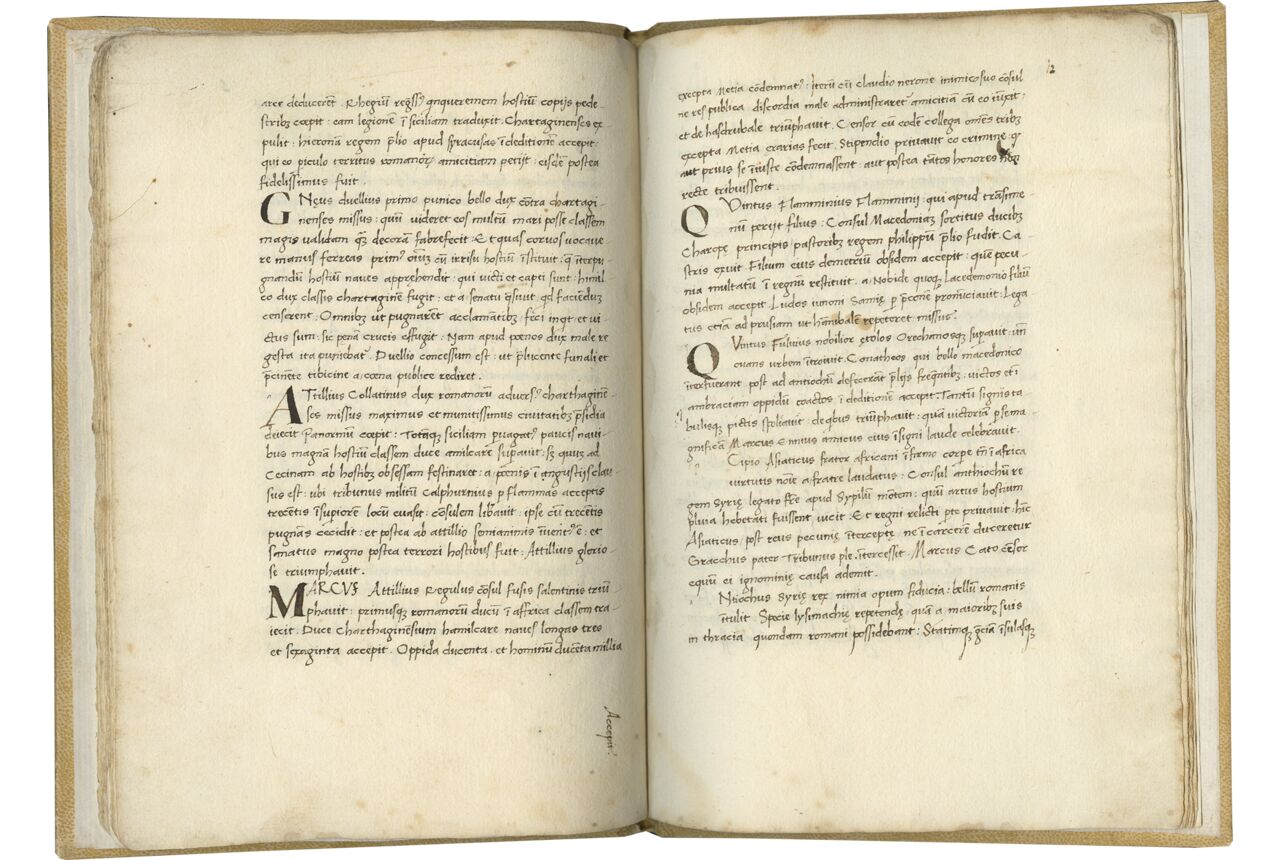 arce deducerēt. Rhegiū regssꝰ qnqueremem hostiū copijs pede-
stribꝫ cœpit: eam legione ī siciliam traduxit. Chartaginenses ex-
pulit: hieronā regem p̄lio apud syracusas ī deditionem accepit:
qui eo piculo territus romanoꝝ amicitiam petijt: eisdē postea
fidelissimus fuit.
GNęus duellius primo punico bello dux cōtra chartagi-
nenses missus: quū videret eos multū mari posse classem
magis validam qꝫ decorā fabrefecit. Et quas corvos vocave
re manus ferreas primꝰ oīuꝫ cū irrisu hostiū īstituit: q īterpu-
gnandū hostiū naves apprehendit: qui victi et capti sunt: himil-
co dux classis chartaginē fugit: et a senatu qsivit qd faciēduꝫ
censerent. Omnibꝫ ut pugnarēt acclamātibꝫ: feci inqt et vi-
ctus sum: sic penā crucis effugit. Nam apud pœnos dux male re
gesta ita puniebatꝰ. Duellio concessum est: ut plucente funali et
p̄cinēte tibicine a cœna publice rediret.
ATtillius Collatinus dux romanorū adversꝰ charthaginē-
ses missus maximus et munitissimus civitatibꝫ p̄sidia
deiecit Panormū cœpit: Totāqꝫ siciliam pvagatꝰ paucis navi-
bus magnā hostiū classem duce amilcare supavit: sꝫ quuꝫ ad
Cecinam ab hostibꝫ obsessam festinaret: a pœnis ī angustijs clau-
sus est: ubi tribunus militū Calphurnius p Flammas acceptis
trecētis īsuperiorē locū evasit: cōsulem libavit: ipse cū trecētis
pugnās cecidit: et postea ab attillio semianimis īventꝰ ē: et
sanatus magno postea terrori hostibus fuit. Attillius glorio-
se triumphavit.
MARCVS Attillius Regulus cōsul fusis salentinis triū-
phavit: primusqꝫ romanorū ducū ī affrica classem tra-
iecit: Duce Charthaginēsium hamilcare naves longas tres
et sexaginta accepit. Oppida ducenta. et hominū ducēta millia
Accepit.
12
excepta Metia cōdemnatꝰ: Iterū cū claudio nerone inimico suo cōsul
ne res publica discordia male administraret amicitiā cū eo iūxit:
et de hasdrubale triūphavit. Censor cū eodē collega omēs tribꝫ
excepta Metia erarias fecit. Stipendio privavit eo crimine: q
aut prius se īiuste cōdemnassent: aut postea tātos honores nōꝫ
recte tribuissent.
QVintus Flammininus Flamminii: qui apud trāsime
nū perijt filius: Consul Macedoniaꝫ sortitus ducibꝫ
Charopę principis pastoribꝫ regem philippū p̄lio fudit. Ca-
stris exuit. Filium eius demetriū obsidem accepit: quē pecu-
nia multatū ī regnū restituit. a Nobide quoqꝫ Lacedemonio filiū
obsidem accepit. Ludos iunoni Samię p p̄conē pronūciavit. Lega-
tus etiā ad prusiam ut hānibalē repeteret missus.
QVintus Fulvius nobilior ętolos Orochanosqꝫ supavit: un
ovans urbem ītroivit. Conatheos qui bello macedonico
īterfuerant post ad antiochū defecerāt p̄lijs freqntibꝫ: victos et ī
ambraciam oppidū coactos ī deditionē accepit. Tantū signis ta
bulisqꝫ pictis spoliavit: de qbus triūphavit: quā victoriā p se ma-
gnificā Marcus Ennius amicus eius īsigni laude celebravit.
Cipio Asiaticus frater africani īfirmo corpe tn̄ ī africa
virtutis noīe a fratre laudatus: Consul anthiochū re
gem Syrię legato fr̄e apud Sypilū mōtem: quū artus hostium
pluvia hebetati fuissent vicit. Et regni relicti pte privavit: hīc
Asiaticus post reus pecunię īterceptę ne ī carcerē duceretur
Gracchus pater Tribunus ple. ītercessit. Marcus Cato cēsor
equū ei ignominię causa ademit.
Ntiochus Syrię rex nimia opum fiducia: bellū romanis
ītulit Specie lysimachię repetendę quā a maioribꝫ suis
in thracia quondam romani possidebant: Statimqꝫ gr̄ciā īsulasqꝫ